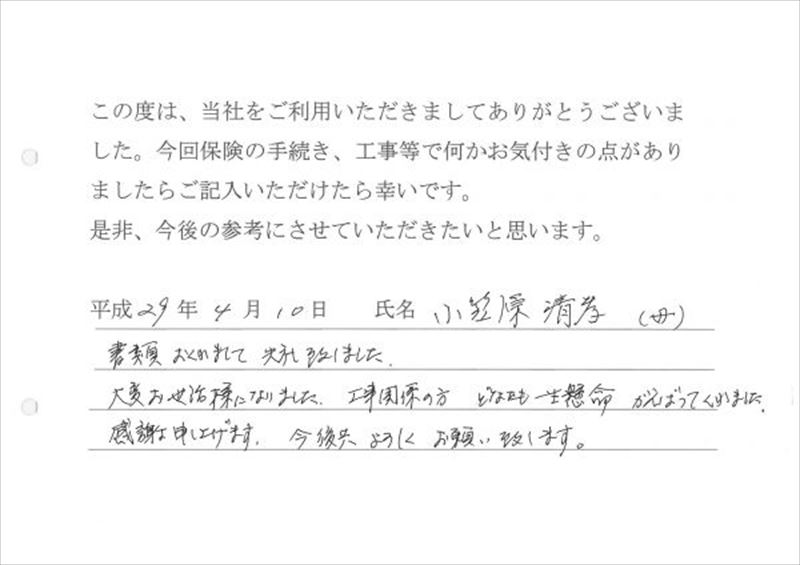 この度は、当社をご利用いただきましてありがとうございま
した。今回保険の手続き、工事等で何かお気付きの点があり
ましたらご記入いただけたら幸いです。
是非、今後の参考にさせていただきたいと思います。
平成29年4月10日 氏名 小笠原 清孝 (母)
書類おくれて 失礼致しました.
大変お世話様になりました. 工事関係の方 どなたも一生懸命 がんばってくれました.
感謝申し上げます. 今後共 よろしく お願い致します。